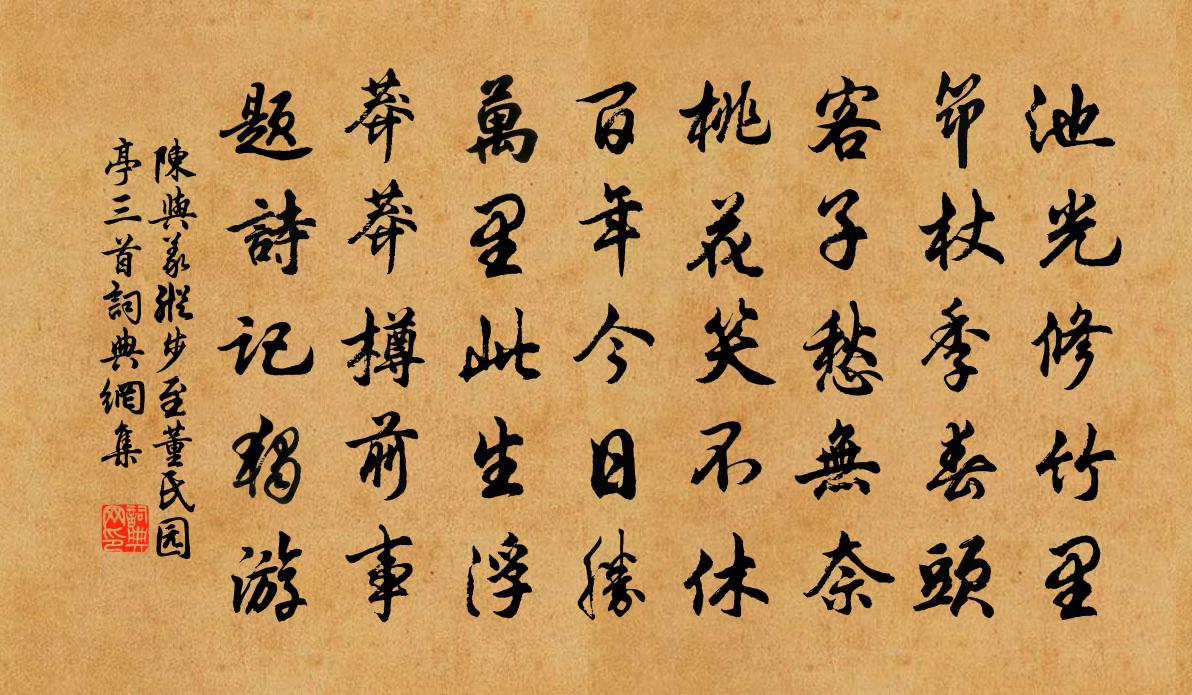 池光修竹里
筇杖季春頭
客子愁無奈
桃花笑不休
百年今日勝
萬里此生浮
莽莽樽前事
題詩記獨游
陳與義縱步至董氏园
亭三首詞典網集
詞典网印